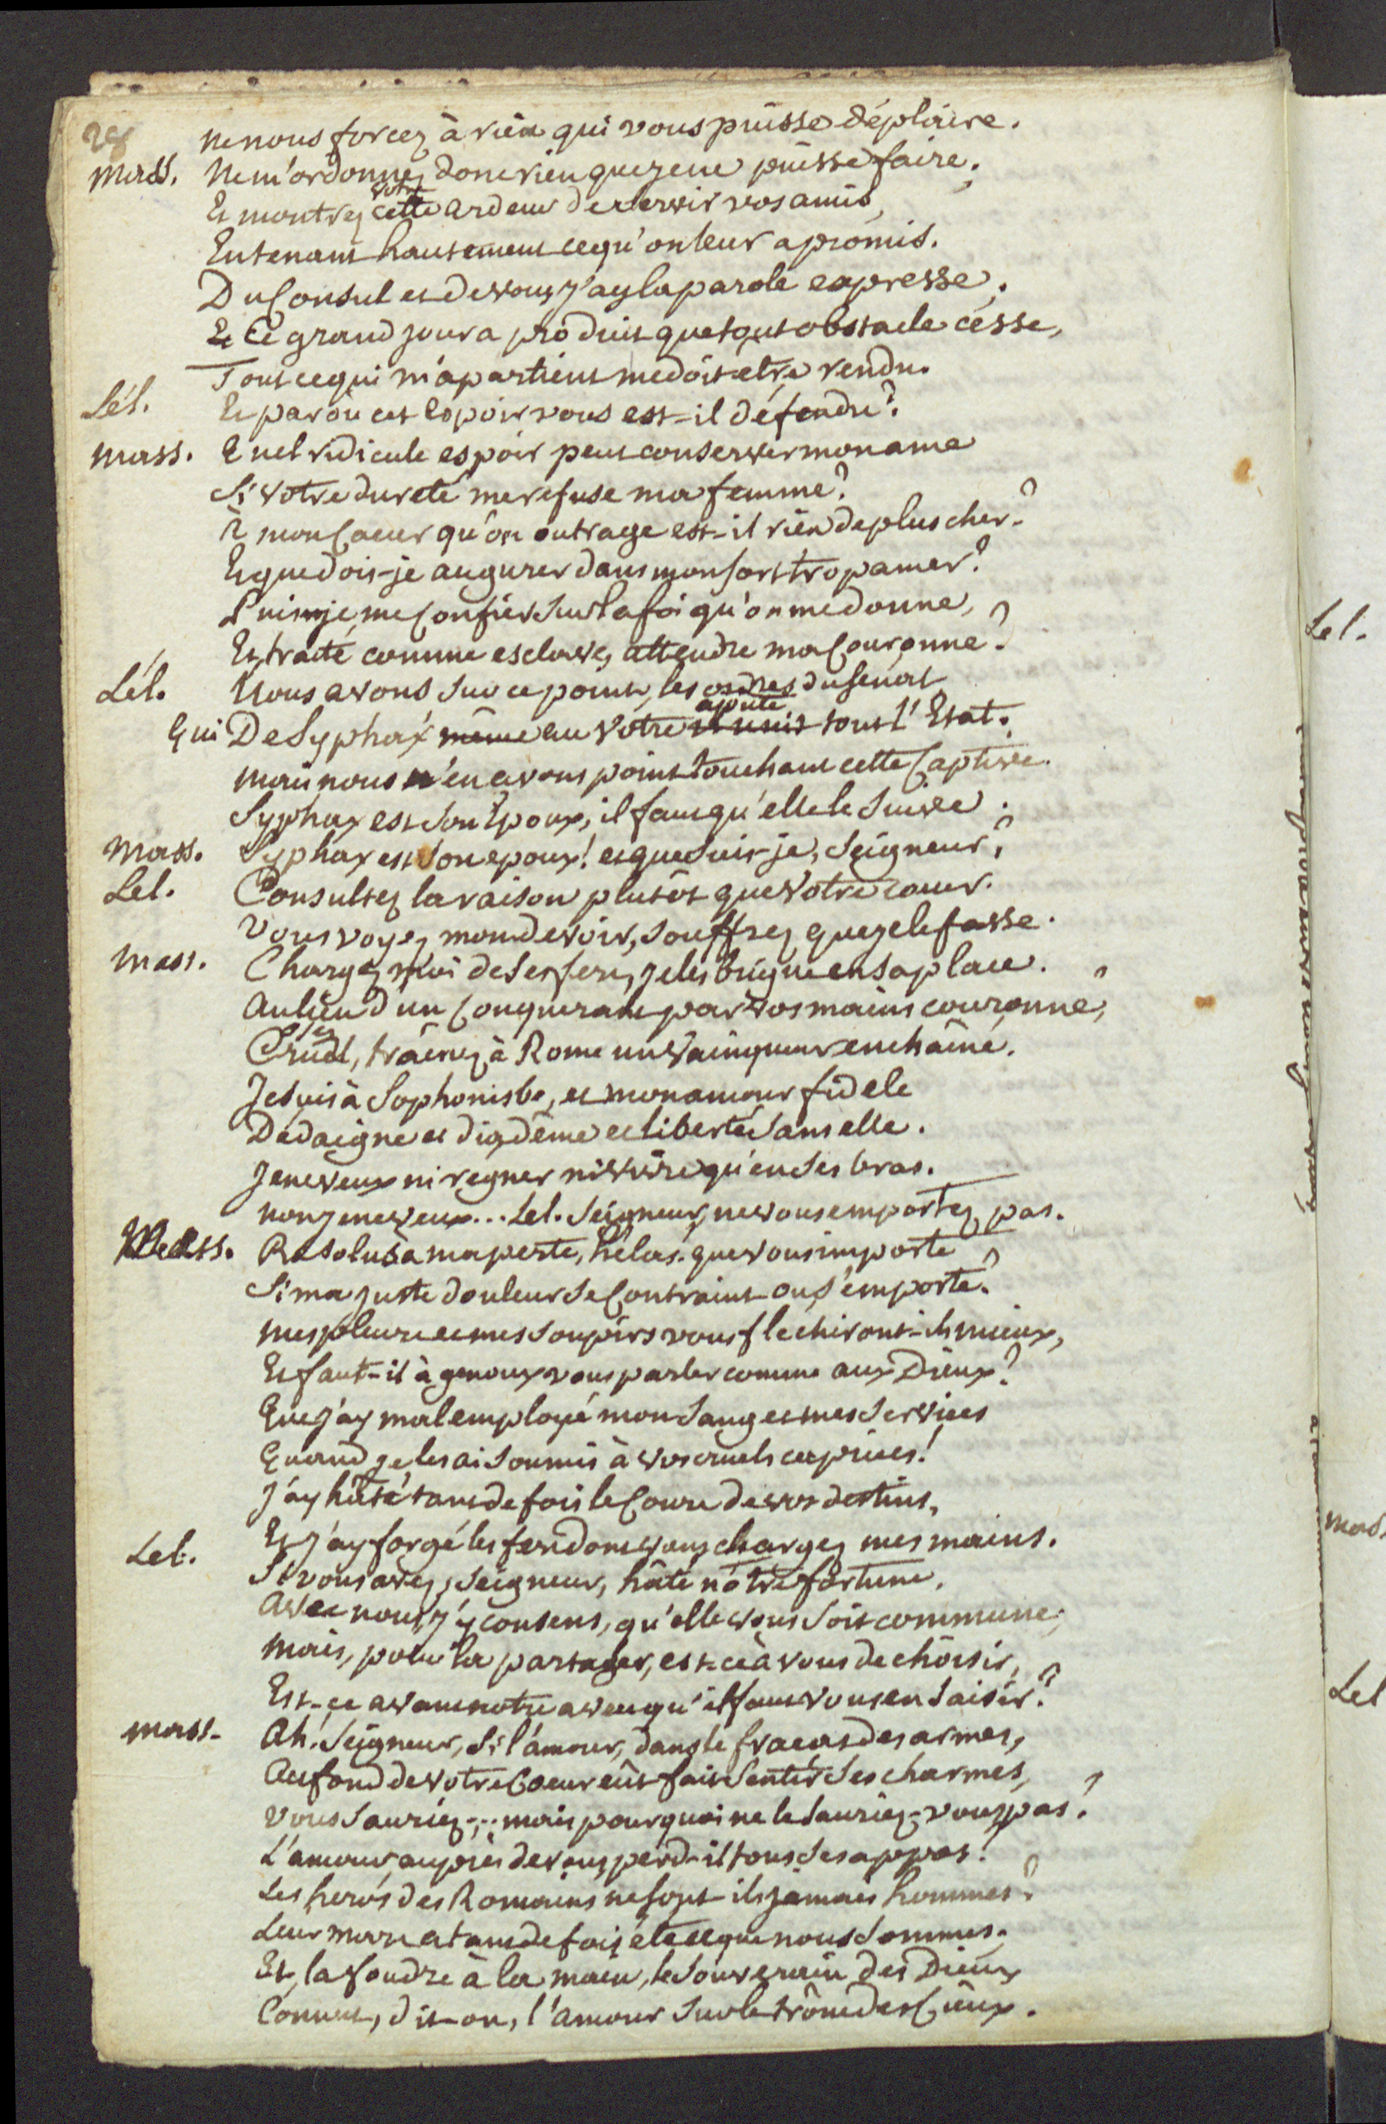 28
ne nous forcez à rien qui vous puisse déplaire.
Mass. Ne m'ordonnez donc rien que je ne puisse faire.
Et montrez votre cette ardeur de servir vos amis,
En tenant hautement ce qu'on leur a promis.
Du Consul et de vous j'ay la parole expresse.
Et Ce grand jour a produit que tout obstacle cesse,
Tout ce qui m'apartient me doit etre rendu.
Lél. Et par où cet espoir vous est-il défendu?
Mass. Quel ridicule espoir peut conserver mon ame
Si votre dureté me refuse ma femme?
À mon Coeur qu'on outrage est-il rien de plus cher?
Et que dois-je augurer dans mon sort trop amer?
Puis-je me Confier sur la foi qu'on me donne,
Et traité comme esclave, attendre ma Couronne?
Lél. Nous avons sur ce point, les ordres du senat
Qui De Syphax même au votre ajoute il unit tout l'Etat.
Mais nous n'en avons point touchant cette Captive.
Syphax est son Epoux, il faut qu'elle le suive.
Mass. Syphax est son epoux! et que suis-je, Seigneur?
Lel. Consultez la raison plutôt que votre coeur.
Vous voyez mon devoir, souffrez que je le fasse.
Mass. Chargez moi de ses fers, je les brigue en sa place.
Au lieu d'un Conquerant par vos mains couronné,
Cruel, traînez à Rome un Vainqueur enchaîné.
Je suis à Sophonisbe, et mon amour fidele
Dédaigne et diadême et liberté sans elle.
Je ne veux ni regner ni vivre qu'en ses bras.
Non je ne veux... Lel. Seigneur, ne vous emportez pas.
Mass. Resolus à ma perte, hélas! que vous importe
Si ma juste douleur se Contraint ou s'emporte?
Mes pleurs et mes soupirs vous flechiront-ils mieux,
Et faut-il à genoux vous parler comme aux Dieux?
Que j'ay mal employé mon sang et mes services
Quand je les ai soumis à vos cruels caprices!
J'ay hâté tant de fois le Cours de vos destins,
Et j'ay forgé les fers dont vous chargez mes mains.
Lel. Si vous avez, Seigneur, hâté nôtre fortune,
Avec nous, j'y consens, qu'elle vous soit commune;
Mais, pour la partager, est-ce à vous de choisir,
Est-ce avant notre aveu qu'il faut vous en saisir?
Mass. Ah! Seigneur, si l'amour, dans le fracas des armes,
Au fond de votre Coeur eût fait sentir ses charmes,
Vous sauriez... mais pourquoi ne le sauriez-vous pas?
L'amour aupres de vous perd-il tous ses appas?
Les heros des Romains ne sont-ils jamais hommes?
Leur Mars a tant de fois été ce que nous sommes.
Et, la foudre à la main, le souverain des Dieux
Connut, dit-on, l'amour sur le trône des Cieux.
Lel.
Mass.
Lel